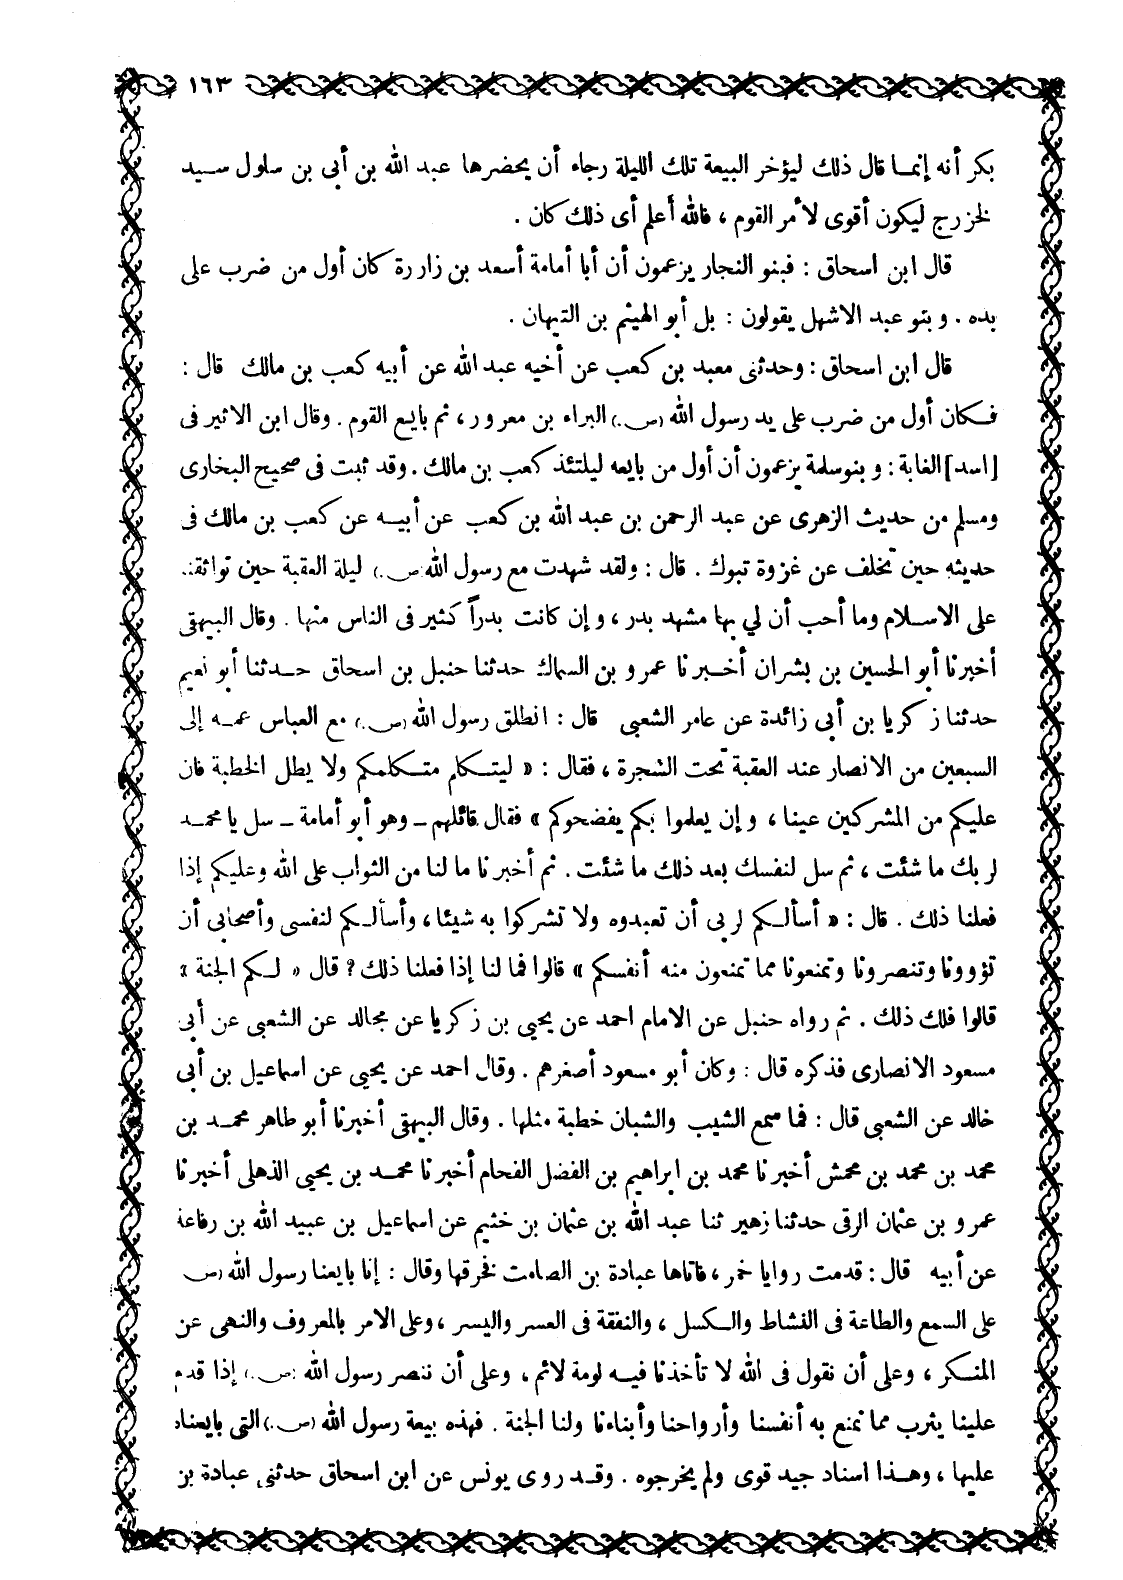 ١٦٣
بكر أنه إنمـا قال ذلك ليؤخر البيعة تلك الليلة رجاء أن يحضرها عبد الله بن أبى بن سلول سـيد
لخزرج ليكون أقوى لأمر القوم ، فالله أعلم أى ذلك كان .
قال ابن اسحاق : فبنو النجار يزعمون أن أبا أمامة أسعد بن زرارة كان أول من ضرب على
يده . وبنو عبد الاشهل يقولون : بل أبو الهيثم بن التيهان .
قال ابن اسحاق : وحدثنى معبد بن كعب عن أخيه عبد الله عن أبيه كعب بن مالك قال :
فـكان أول من ضرب على يد رسول الله (ص.) البراء بن معرور ، ثم بايع القوم . وقال ابن الاثير فى
[اسد] الغابة : وبنوسلمة يزعمون أن أول من بايعه ليلتئذ كعب بن مالك . وقد ثبت فى صحيح البخارى
ومسلم من حديث الزهرى عن عبد الرحمن بن عبد الله بن كعب عن أبيـه عن كعب بن مالك فى
حديثه حين تخلف عن غزوة تبوك . قال : ولقد شهدت مع رسول الله (ص.) ليلة العقبة حين تواثقنـ
على الاسـلام وما أحب أن لي بها مشهد بدر ، وإن كانت بدراً كثير فى الناس منها . وقال البيهقى
أخبرنا أبو الحسين بن بشران أخـبرنا عمرو بن السماك حدثنا حنبل بن اسحاق حـدثنا أبو نعيم
حدثنا زكريا بن أبى زائدة عن عامر الشعبى قال : انطلق رسول الله (ص.) مع العباس عمـه إلى
السبعين من الانصار عند العقبة تحت الشجرة ، فقال : « ليتـكلم متـكلمكم ولا يطل الخطبة فان
عليكم من المشركين عينا ، وإن يعلموا بكم يفضحوكم » فقال قائلهم ـ وهو أبو أمامة ـ سل يا محمـد
لربك ما شئت ، ثم سل لنفسك بعد ذلك ما شئت . ثم أخبرنا ما لنا من الثواب على الله وعليكم إذا
فعلنا ذلك . قال : « أسألـكم لربى أن تعبدوه ولا تشركوا به شيئا ، وأسألـكم لنفسى وأصحابى أن
تؤوونا وتنصرونا وتمنعونا مما تمنعون منه أنفسكم » قالوا فما لنا إذا فعلنا ذلك ؟ قال « لـكم الجنة »
قالوا فلك ذلك . ثم رواه حنبل عن الامام احمد عن يحيى بن زكريا عن مجالد عن الشعبى عن أبى
مسعود الانصارى فذكره قال : وكان أبو مسعود أصغرهم . وقال احمد عن يحيى عن اسماعيل بن أبى
خالد عن الشعبى قال : فما سمع الشيب والشبان خطبة مثلها . وقال البيهقى أخبرنا أبو طاهر محمـد بن
محمد بن محمد بن محمش أخبرنا محمد بن ابراهيم بن الفضل الفحام أخبرنا محمـد بن يحيى الذهلى أخبرنا
عمرو بن عثمان الرقى حدثنا زهير ثنا عبد الله بن عثمان بن خثيم عن اسماعيل بن عبيد الله بن رفاعة
عن أبيه قال : قدمت روايا خمر ، فاتاها عبادة بن الصامت فخرقها وقال : إنا بايعنا رسول الله (ص
على السمع والطاعة فى النشاط والـكسل ، والنفقة فى العسر واليسر ، وعلى الامر بالمعروف والنهى عن
المنـكر ، وعلى أن نقول فى الله لا تأخذنا فيـه لومة لائم ، وعلى أن ننصر رسول الله (ص.) إذا قدم
علينا يثرب مما نمنع به أنفسنا وأرواحنا وأبناءنا ولنا الجنة . فهذه بيعة رسول الله (ص.) التى بايعناه
عليها ، وهـذا اسناد جيد قوى ولم يخرجوه . وقـد روى يونس عن ابن اسحاق حدثنى عبادة بن